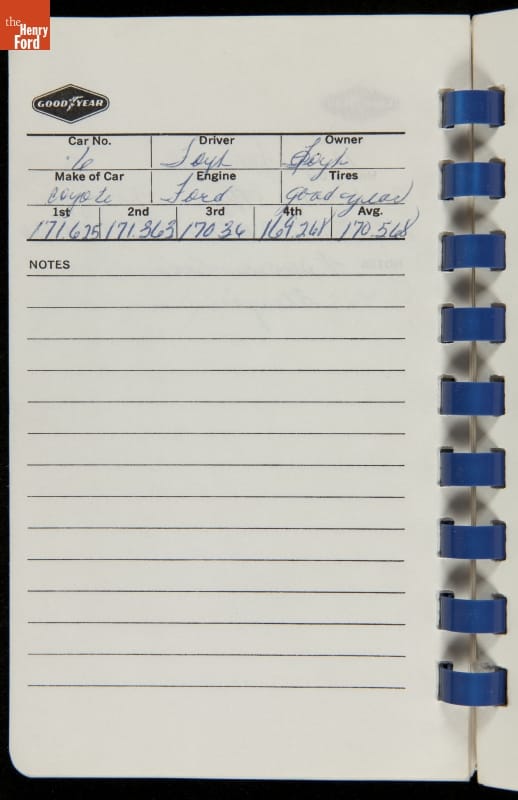 the Henry Ford
GOODYEAR
Car No. Driver Owner
6 Foyt Foyt
Make of Car Engine Tires
Coyote Ford Goodyear
1st 2nd 3rd 4th Avg.
171.625 171.363 170.36 169.241 170.568
NOTES